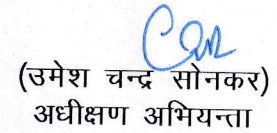 (उमेश चन्द्र सोनकर)
अधीक्षण अभियन्ता